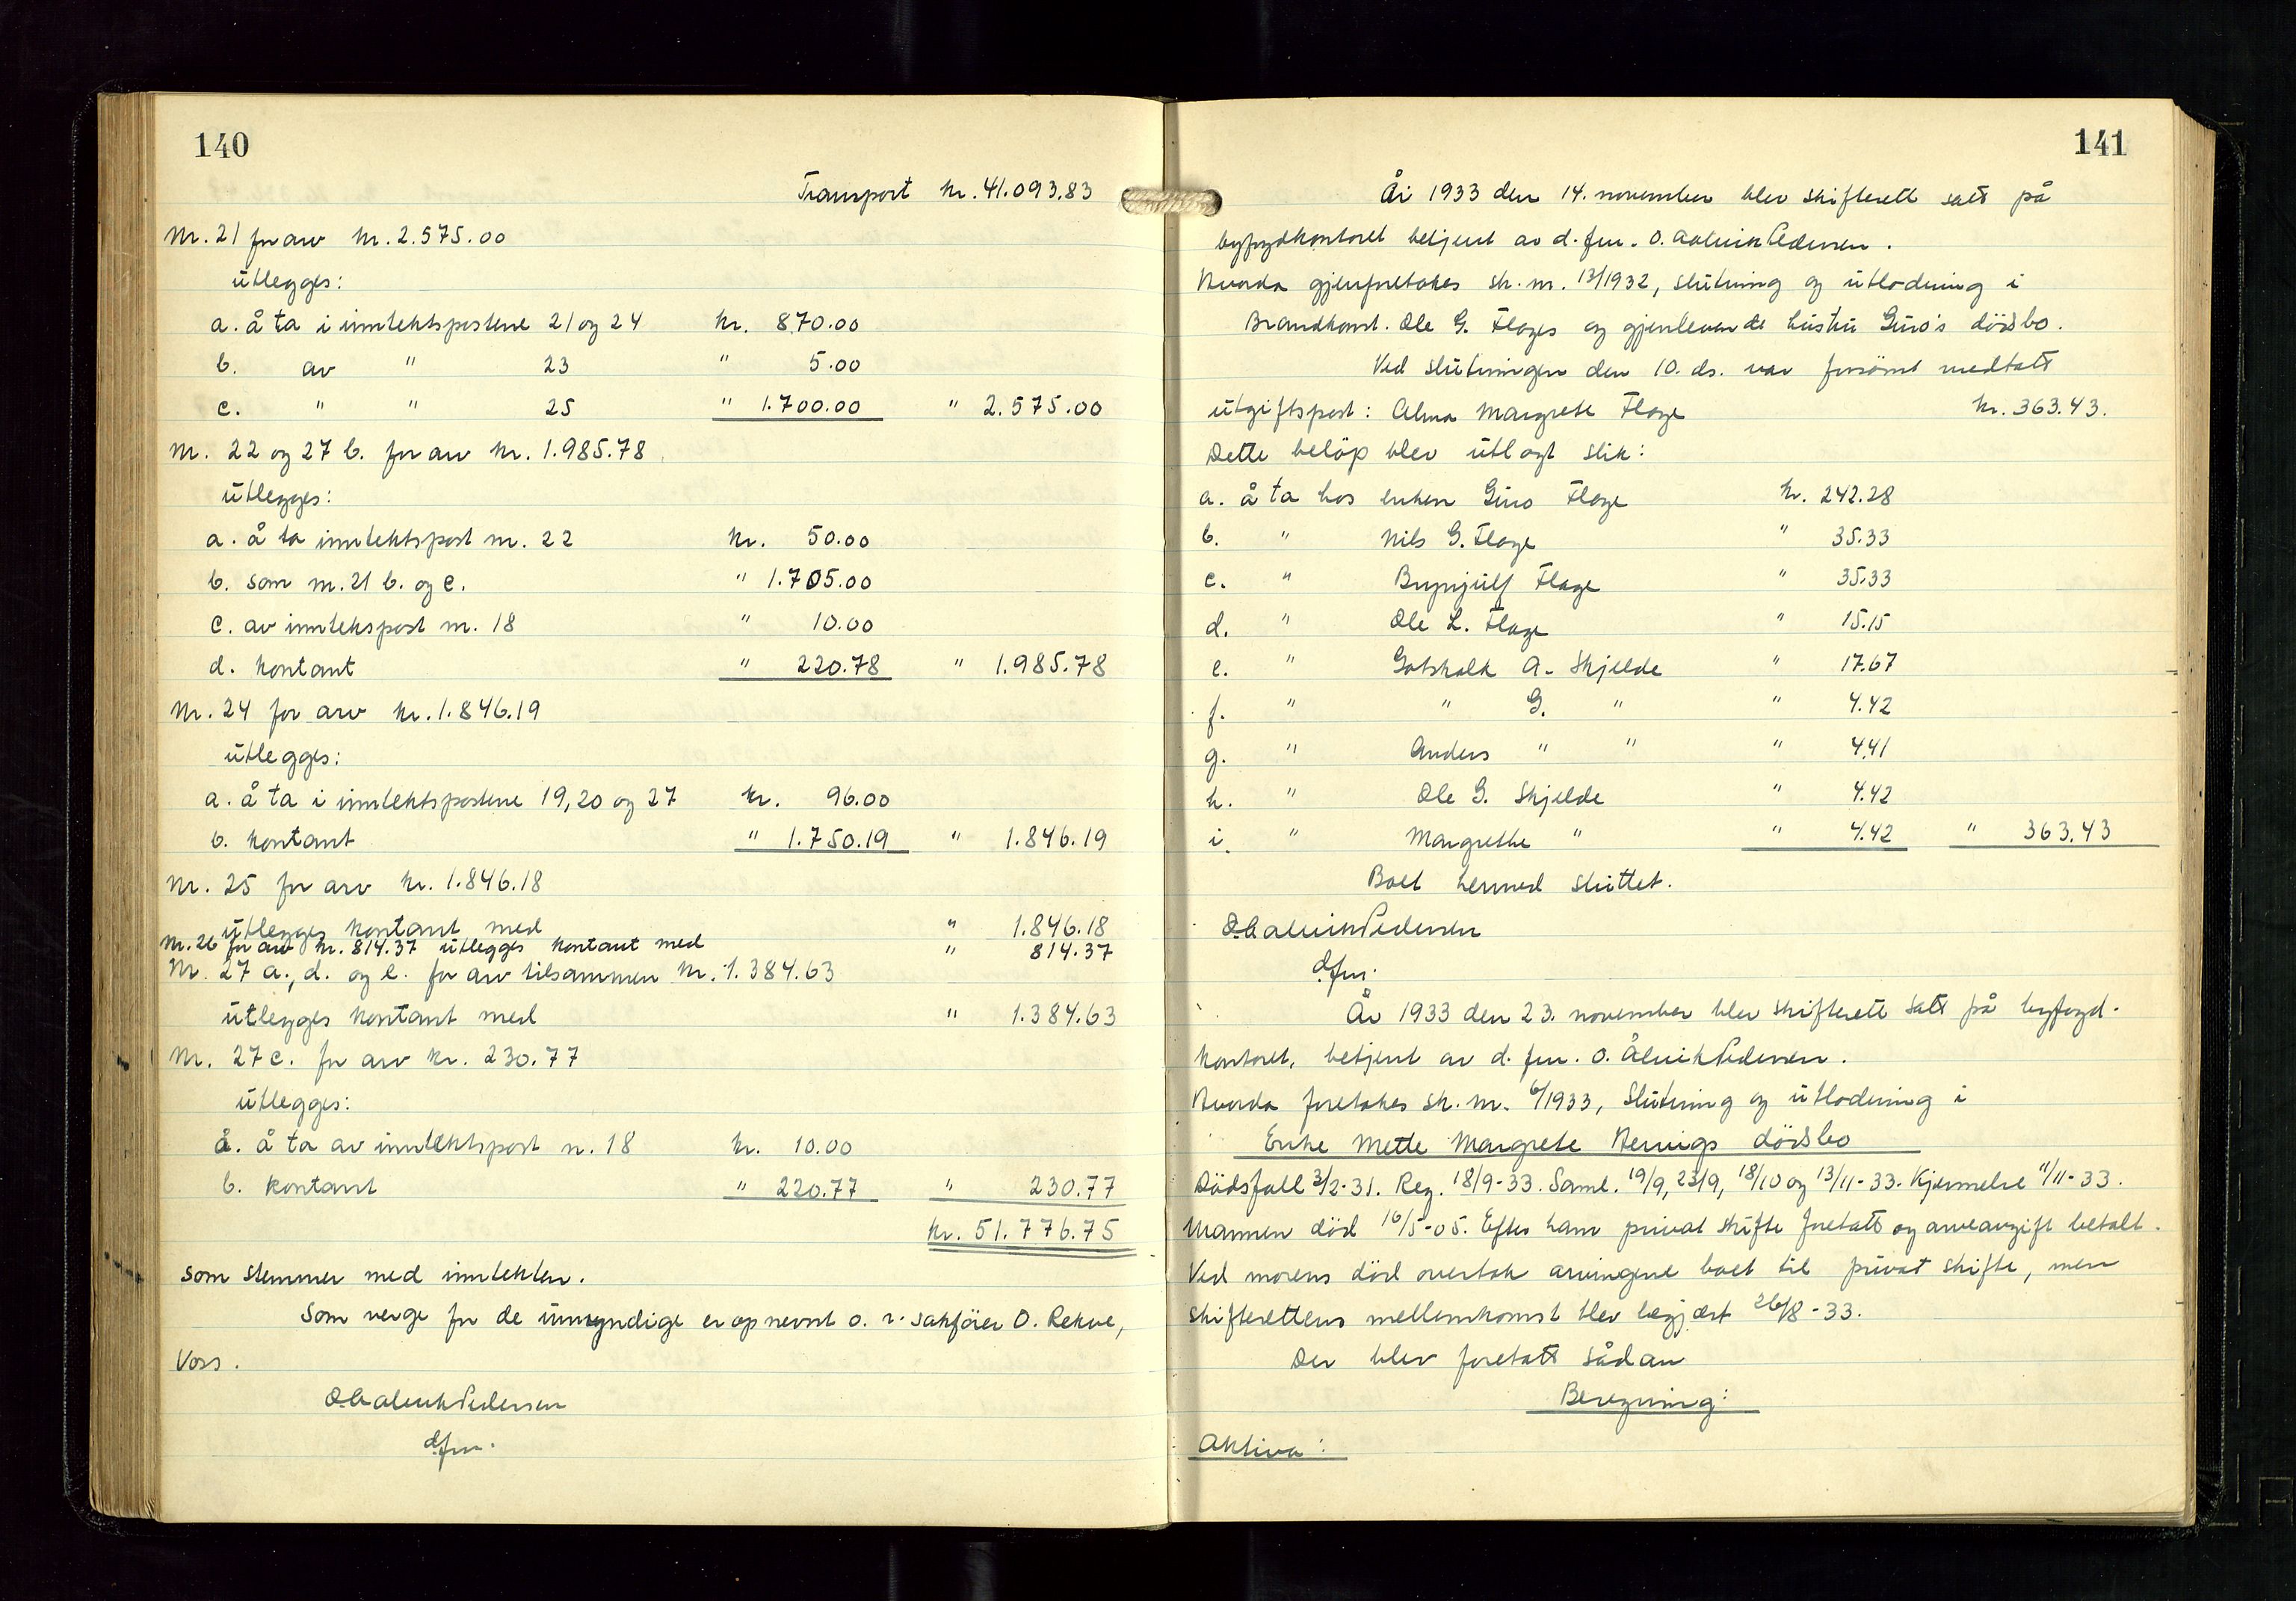 140
Transport kr. 41.093.83
Nr. 21 for arv kr. 2.575.00
utlegges:
a. å ta i inntektspostene 21 og 24 kr. 870.00
b. av " 23 " 5.00
c. " " 25 " 1.700.00 " 2.575.00
Nr. 22 og 27 b. for arv kr. 1.985.78
utlegges:
a. å ta inntektspost nr. 22 kr. 50.00
b. som nr. 21 b. og c. " 1.705.00
c. av inntekspost nr. 18 " 10.00
d. kontant " 220.78 " 1.985.78
Nr. 24 for arv kr. 1.846.19
utlegges:
a. å ta i inntektspostene 19, 20 og 27 kr. 96.00
b. kontant " 1.750.19 " 1.846.19
Nr. 25 for arv kr. 1.846.18
utlegges kontant med " 1.846.18
Nr. 26 for arv kr. 814.37 utlegges kontant med " 814.37
Nr. 27 a., d. og e. for arv tilsammen kr. 1.384.63
utlegges kontant med " 1.384.63
Nr. 27 c. for arv kr. 230.77
utlegges:
a. å ta av inntektspost n. 18 kr. 10.00
b. kontant " 220.77 " 230.77
kr. 51.776.75
som stemmer med inntekten.
Som verge for de umyndige er opnevnt o. r. sakfører O. Rekve,
Voss.
O. Aalvik Pedersen
d.fm.
141
År 1933 den 14. november blev skifterett satt på
byfogdkontoret betjent av d. fm. O. Aalvik Pedersen.
Hvorda gjenforetokes sk. nr. 13/1932, slutning og utlodning i
Brandkonst. Ole G. Flages og gjenlevende hustru Guro's dødsbo.
Ved slutningen den 10. ds. var forsømt medtatt
utgiftspost: Alma Margrete Flage kr. 363.43.
Dette beløp blev utlagt slik:
a. å ta hos enken Guro Flage kr. 242.28
b. " Nils G. Flage " 35.33
c. " Brynjulf Flage " 35.33
d. " Ole L. Flage " 15.15
e. " Gotskalk A. Skjelde " 17.67
f. " " G. " " 4.42
g. " Anders " " " 4.41
h. " Ole G. Skjelde " 4.42
i. " Margrethe " " 4.42 " 363.43
Boet hermed sluttet.
O. Aalvik Pedersen
d.fm.
År 1933 den 23. november blev skifterett satt på byfogd-
kontoret, betjent av d. fm. O. Ålvik Pedersen.
Hvorda foretokes sk. nr. 6/1933, slutning og utlodning i
Enke Mette Margrete Hernigs dødsbo
Dødsfall 3/2-31. Reg. 18/9-33. Saml. 19/9, 23/9, 18/10 og 13/11-33. Kjennelse 11/11-33.
Mannen død 16/5-05. Efter ham privat skifte foretatt og arveavgift betalt.
Ved morens død overtok arvingene boet til privat skifte, men
skifterettens mellemkomst blev begjært 26/8-33.
Der blev foretatt sådan
Beregning:
Aktiva: